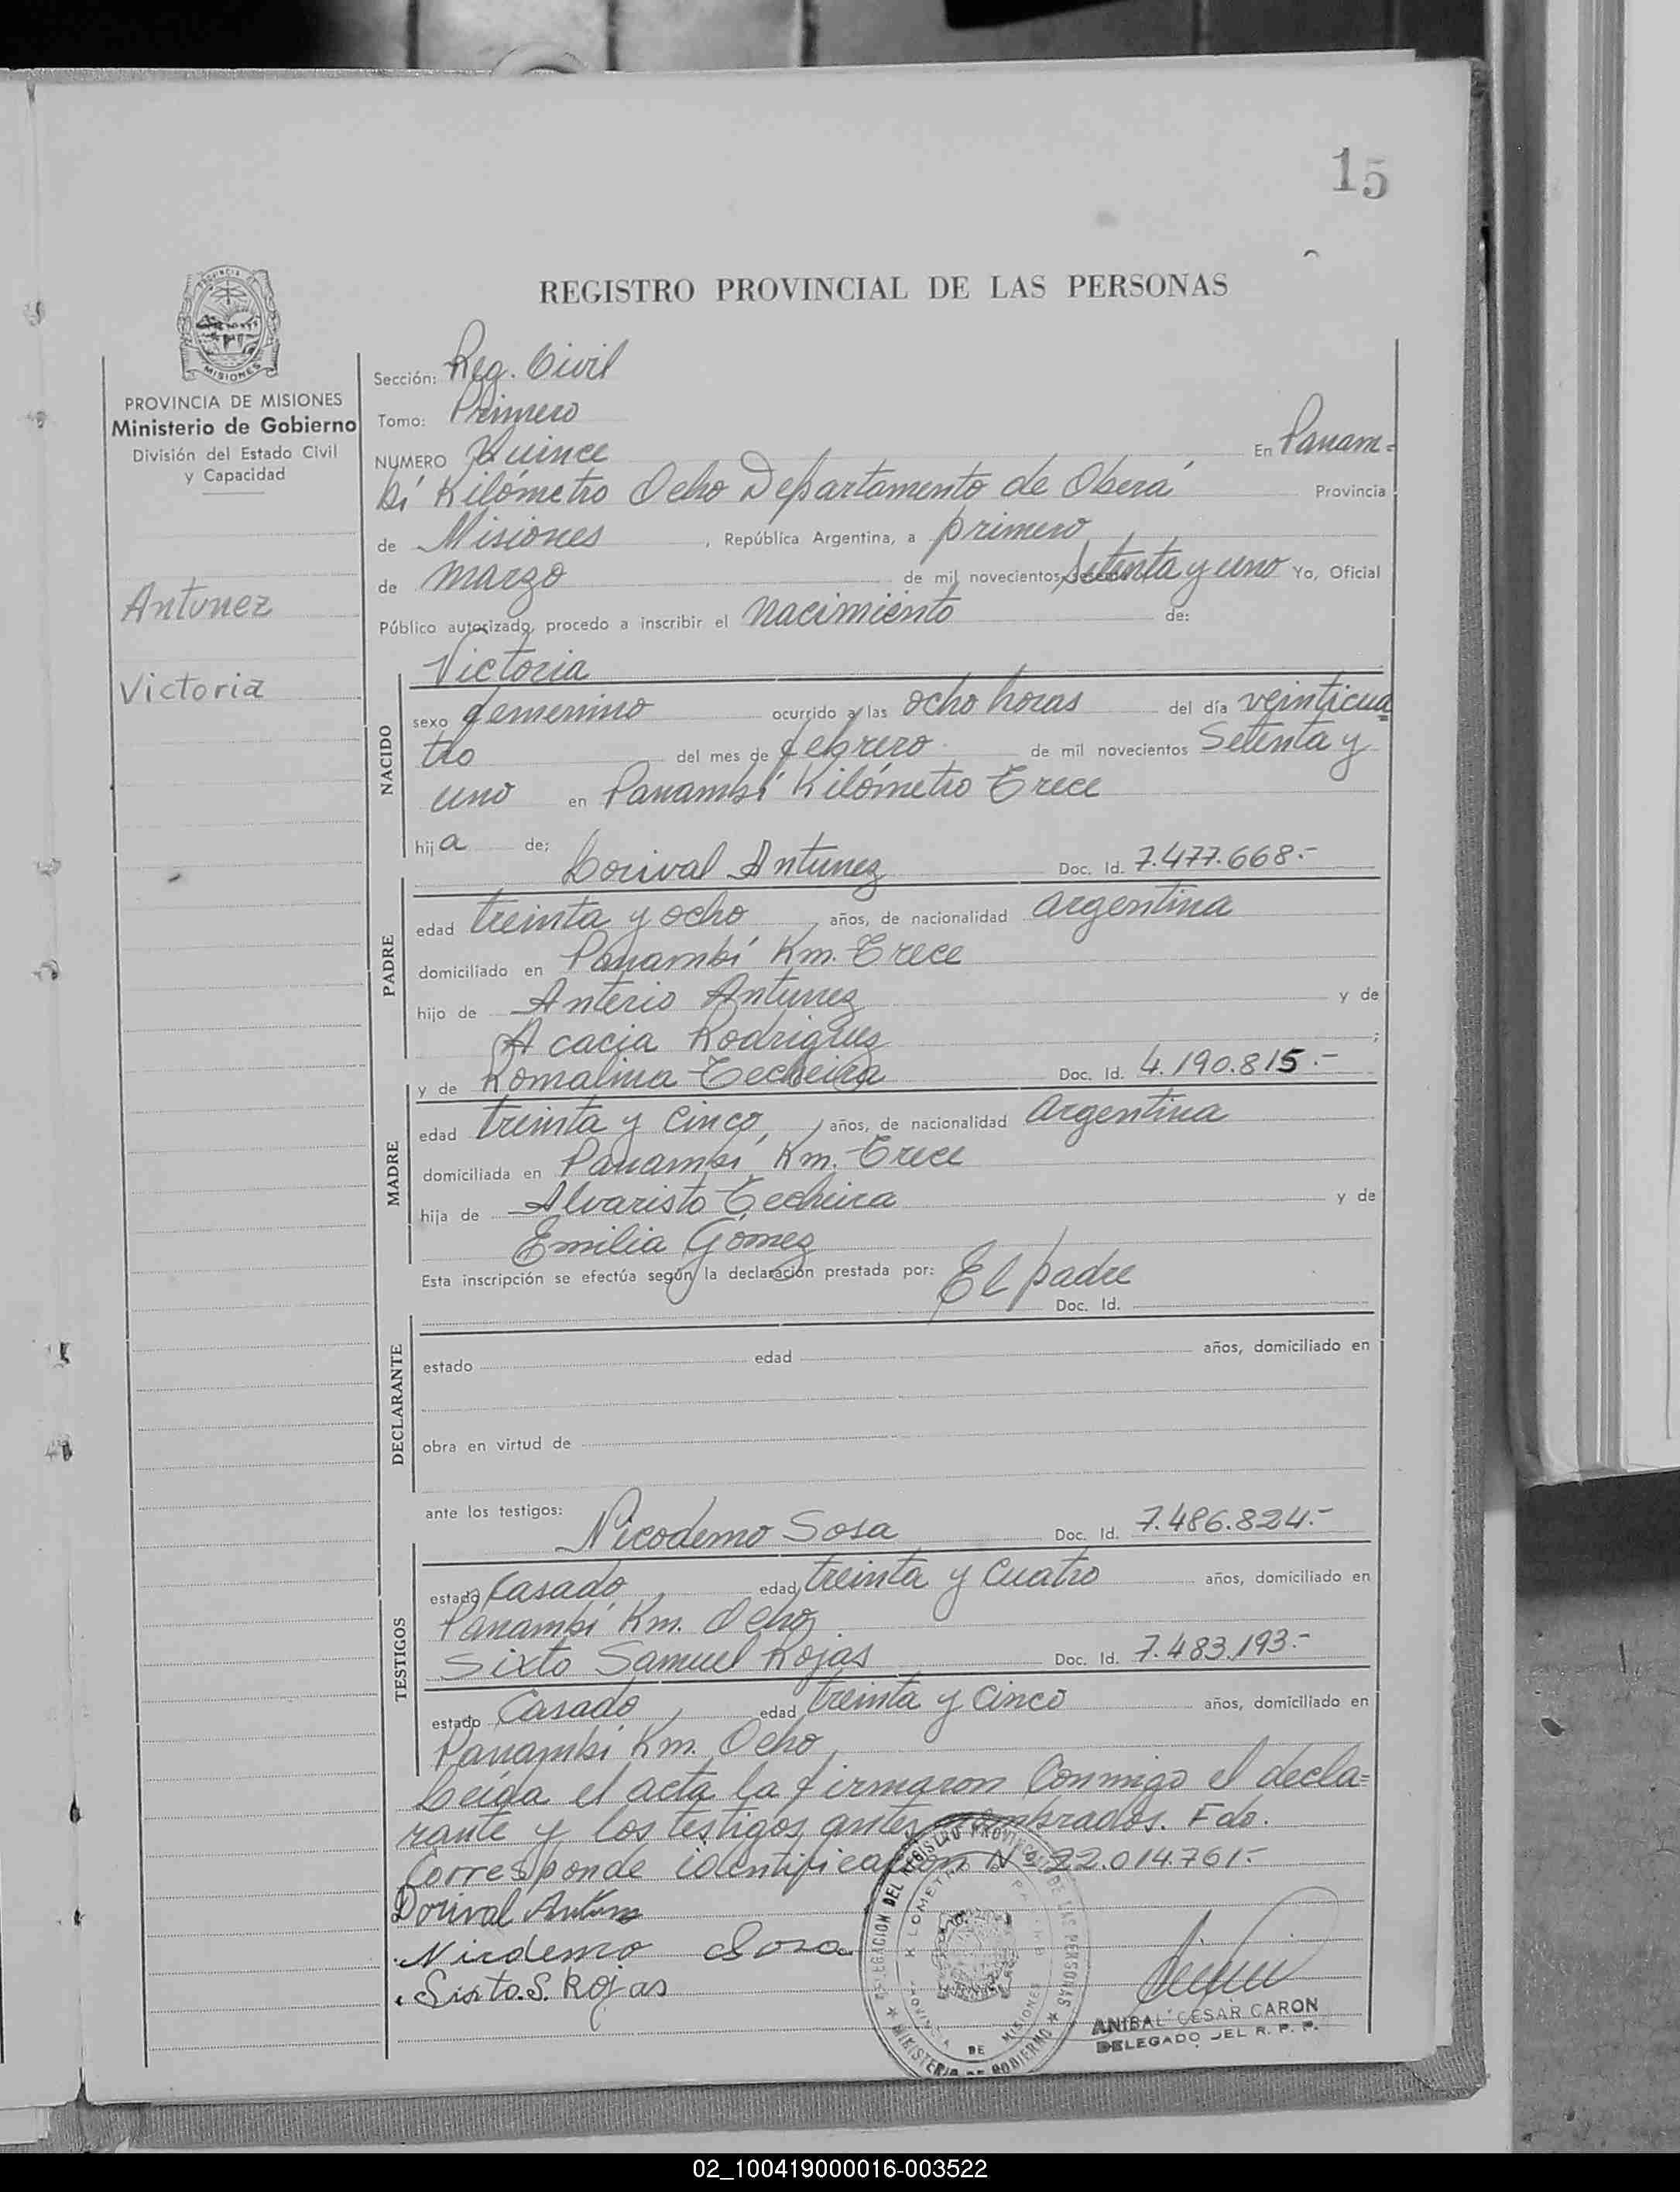 15
REGISTRO PROVINCIAL DE LAS PERSONAS
PROVINCIA DE MISIONES
Ministerio de Gobierno
División del Estado Civil
y Capacidad
Antunez
Victoria
Sección: Reg. Civil
Tomo: Primero
NUMERO Quince En Panam=
bí Kilómetro Ocho Departamento de Oberá Provincia
de Misiones, República Argentina, a primero
de marzo de mil novecientos setenta y uno Yo, Oficial
Público autorizado, procedo a inscribir el nacimiento de:
Victoria
NACIDO
sexo femenino ocurrido a las ocho horas del día veinticua=
tro del mes de febrero de mil novecientos setenta y
uno en Panambí Kilómetro Trece
hija de:
Dorival Antunez Doc. Id. 7.477.668.-
PADRE
edad treinta y ocho años, de nacionalidad argentina
domiciliado en Panambí Km. Trece
hijo de Anterio Antunez y de
Acacia Rodriguez;
y de Romalina Techeira Doc. Id. 4.190.815.-
MADRE
edad treinta y cinco, años, de nacionalidad argentina
domiciliada en Panambí Km. Trece
hija de Alvaristo Techeira y de
Emilia Gómez
Esta inscripción se efectúa según la declaración prestada por: El padre
Doc. Id.
DECLARANTE
estado edad años, domiciliado en
obra en virtud de
ante los testigos:
Nicodemo Sosa Doc. Id. 7.486.824.-
TESTIGOS
estado Casado, edad treinta y cuatro años, domiciliado en
Panambí Km. Ocho,
Sixto Samuel Rojas Doc. Id. 7.483.193.-
estado Casado, edad treinta y cinco años, domiciliado en
Panambí Km. Ocho,
Leida el acta la firmaron Conmigo el decla=
rante y los testigos antes nombrados. Fdo.
Corresponde identificación Nº 22.014.761.-
Dorival Antunes
Nicdemo Sosa
Sixto. S. Rojas
DELEGACION DEL REGISTRO PROVINCIAL DE LAS PERSONAS
MINISTERIO DE GOBIERNO
PROVINCIA DE MISIONES
ANIBAL CESAR CARON
DELEGADO DEL R. P. P.
MISIONES
02_100419000016-003522